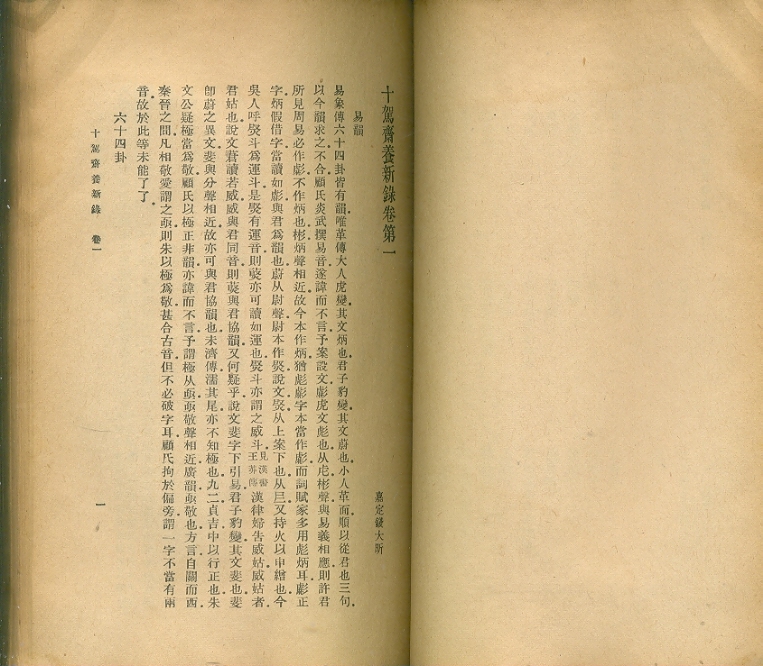 十駕齋養新錄卷第一
嘉定錢大昕
易韻
易象傳六十四卦皆有韻唯革傳大人虎變其文炳也君子豹變其文蔚也小人革面順以從君也三句
以今韻求之不合顧氏炎武撰易音遂諱而不言予案說文彪虎文彪也从虎彬聲與易義相應則許君
所見周易必作彪不作炳也彬炳聲相近故今本作炳猶彪彪字本當作彪而詞賦家多用彪炳耳彪正
字炳假借字當讀如彪與君爲韻也蔚从尉聲尉本作㷉說文㷉从上案下也从𡰥又持火以申繒也今
吳人呼㷉斗爲運斗是㷉有運音則蔚亦可讀如運也㷉斗亦謂之威斗見漢書王莽傳漢律婦告威姑威姑者
君姑也說文莙讀若威威與君同音則蔚與君協韻又何疑乎說文斐字下引易君子豹變其文斐也斐
卽蔚之異文斐與分聲相近故亦可與君協韻也未濟傳濡其尾亦不知極也九二貞吉中以行正也朱
文公疑極當爲敬顧氏以極正非韻亦諱而不言予謂極从亟亟敬聲相近廣韻亟敬也方言自關而西
秦晉之間凡相敬愛謂之亟則朱以極爲敬甚合古音但不必破字耳顧氏拘於偏旁謂一字不當有兩
音故於此等未能了了
六十四卦
十駕齋養新錄 卷一
一